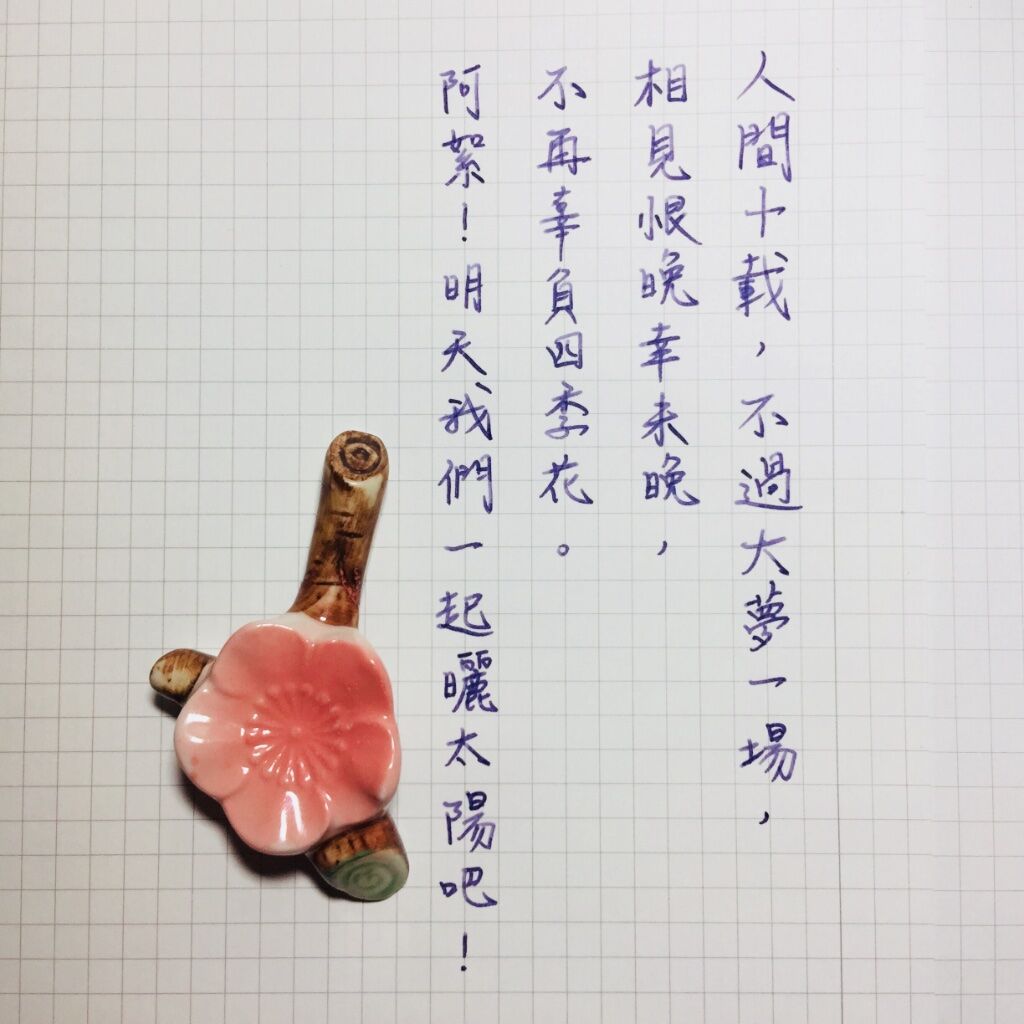 人間十載，不過大夢一場，
相見恨晚幸未晚，
不再辜負四季花。
阿絮！明天我們一起曬太陽吧！